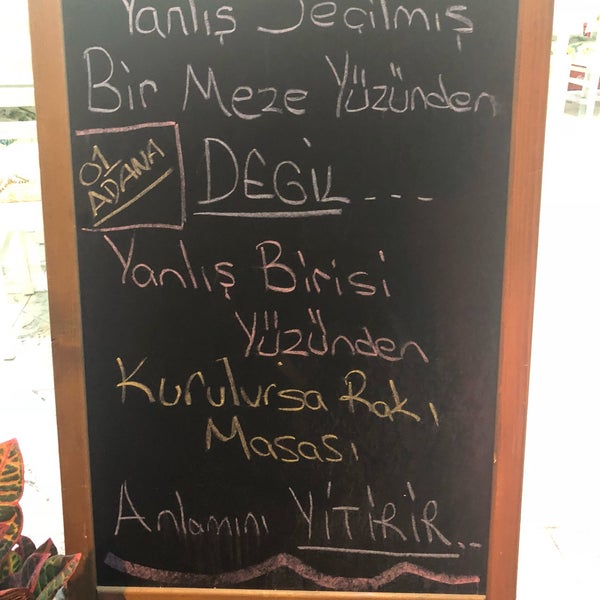 Yanlış Seçilmiş
Bir Meze Yüzünden
01
ADANA
DEGİL ...
Yanlış Birisi
Yüzünden
Kurulursa Rakı
Masası
Anlamını YİTİRİR..